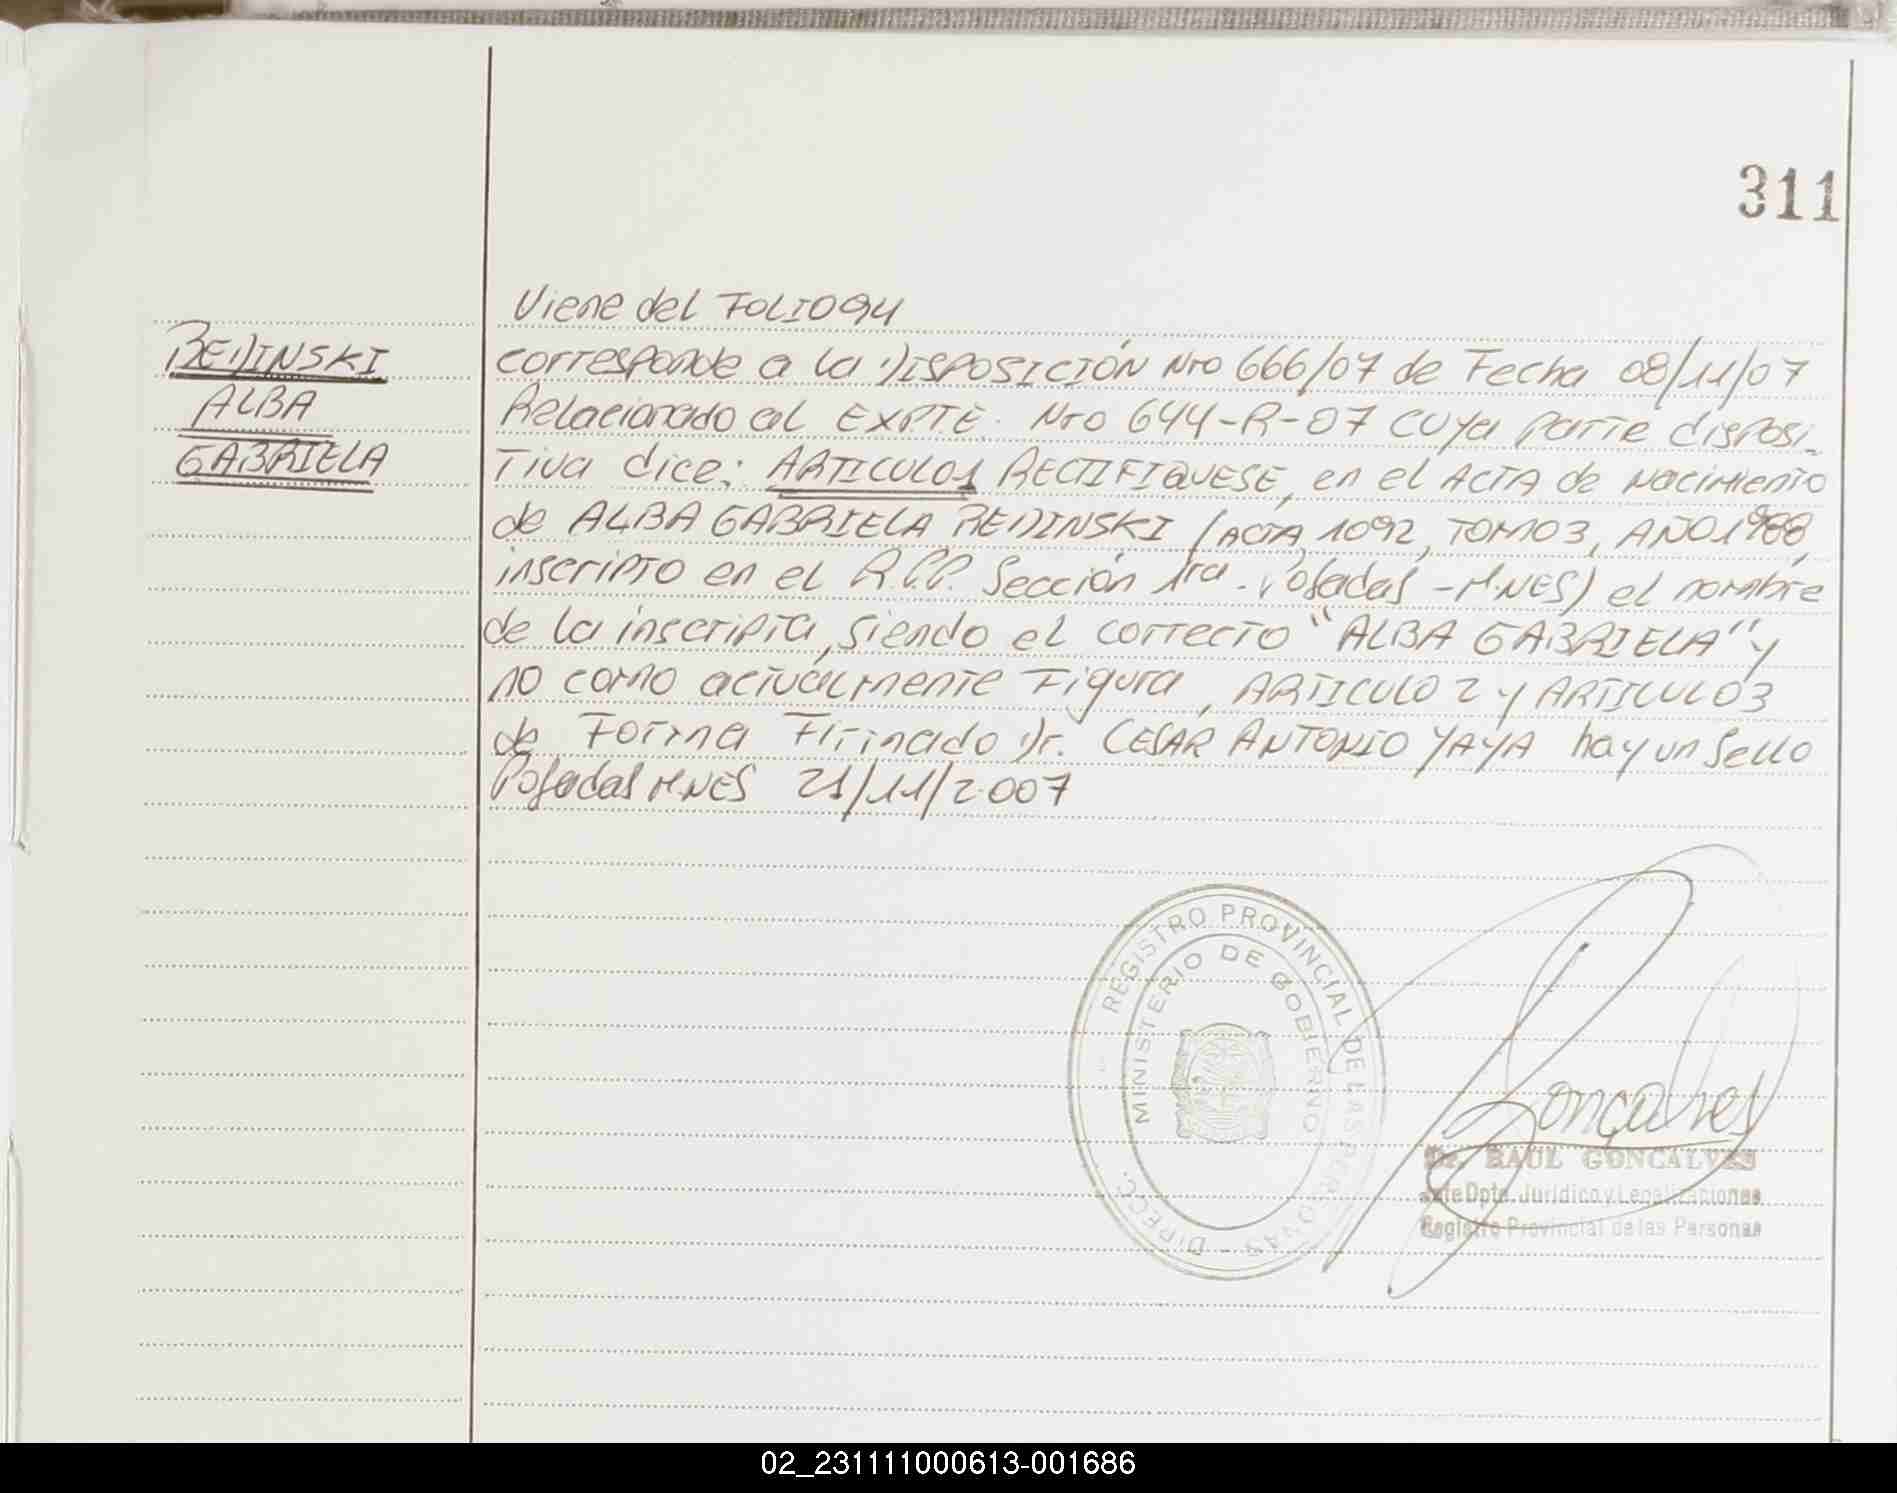 311
Viene del FOLIO 94
REDINSKI
ALBA
GABRIELA
corresponde a la DISPOSICIÓN Nro 666/07 de Fecha 08/11/07
Relacionado al EXPTE. Nro 644-R-07 cuya parte disposi-
tiva dice: ARTICULO 1 RECTIFIQUESE, en el ACTA de nacimiento
de ALBA GABRIELA REDINSKI (ACTA 1092, TOMO 3, AÑO 1988,
inscripto en el R.P.P. Sección 1ra. Posadas - M.NES) el nombre
de la inscripta, siendo el correcto "ALBA GABRIELA" y
no como actualmente Figura, ARTICULO 2 y ARTICULO 3
de Forma Firmado Dr. CESAR ANTONIO YAYA hay un sello
Posadas M.NES 21/11/2007
REGISTRO PROVINCIAL DE LAS PERSONAS - DIRECC.
MINISTERIO DE GOBIERNO
Gonçalves
Dr. RAUL GONCALVES
Jefe Dpto. Jurídico y Legalizaciones
Registro Provincial de las Personas
02_231111000613-001686